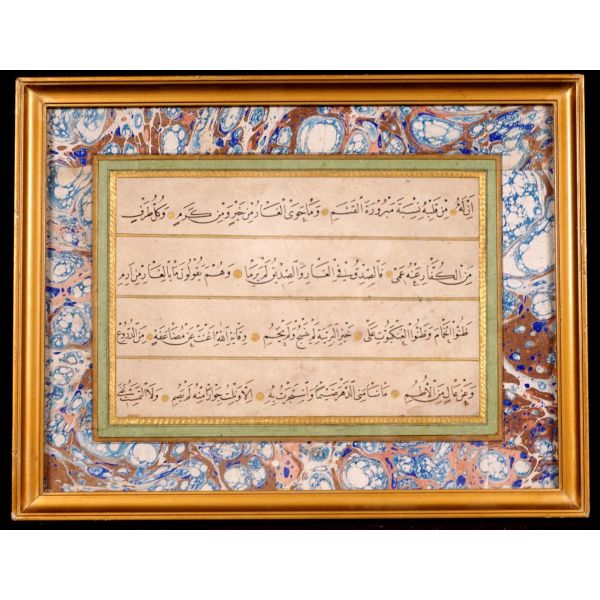 إِنَّ لَهُ مِنْ قَلْبِهِ نِسْبَةً مَبْرُورَةَ الْقَسَمِ وَمَا حَوَى الْغَارُ مِنْ خَيْرٍ وَمِنْ كَرَمٍ وَكُلُّ طَرْفٍ
مِنَ الْكُفَّارِ عَنْهُ عَمِي فَالصِّدْقُ فِي الْغَارِ وَالصِّدِّيقُ لَمْ يَرِمَا وَهُمْ يَقُولُونَ مَا بِالْغَارِ مِنْ أَرِمِ
ظَنُّوا الْحَمَامَ وَظَنُّوا الْعَنْكَبُوتَ عَلَى خَيْرِ الْبَرِيَّةِ لَمْ تَنْسُجْ وَلَمْ تَحُمِ وِقَايَةُ اللهِ أَغْنَتْ عَنْ مُضَاعَفَةٍ مِنَ الدُّرُوعِ
وَعَنْ عَالٍ مِنَ الْأُطُمِ مَا سَامَنِي الدَّهْرُ ضَيْمًا وَاسْتَجَرْتُ بِهِ إِلَّا وَنِلْتُ جِوَارًا مِنْهُ لَمْ يُضَمِ وَلَا الْتَمَسْتُ غِنَى